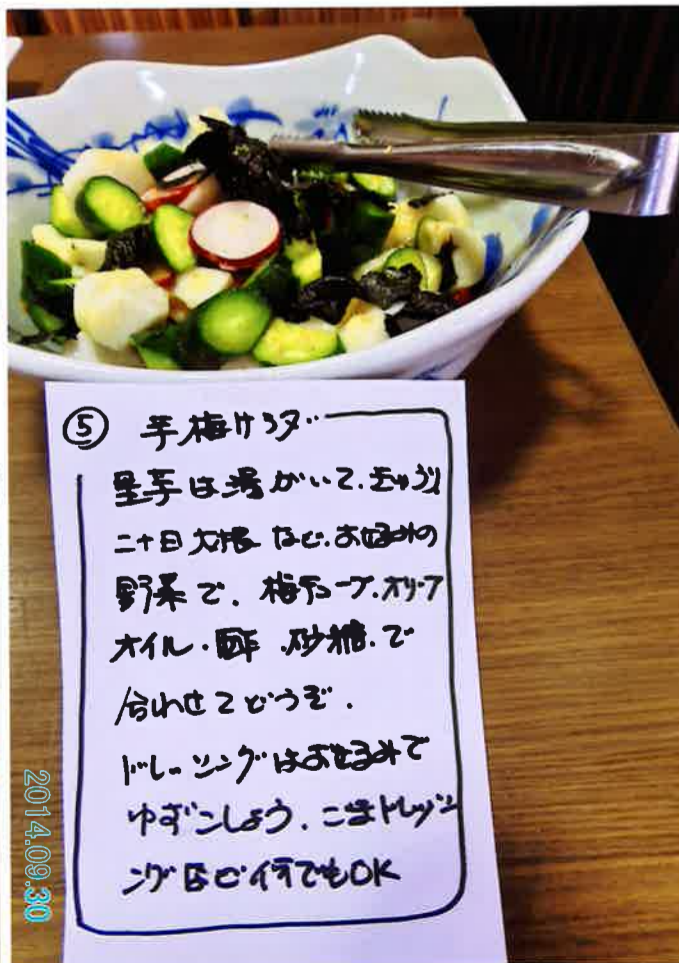 ⑤ 芋梅サラダ
里芋は湯がいて、きゅうり
二十日大根 など、お好みの
野菜で、梅チューブ、オリーブ
オイル・酢、砂糖、で
合わせてどうぞ。
ドレッシングはお好みで
ゆずこしょう、ごまドレッシ
ングなど何でもOK
2014.09.30